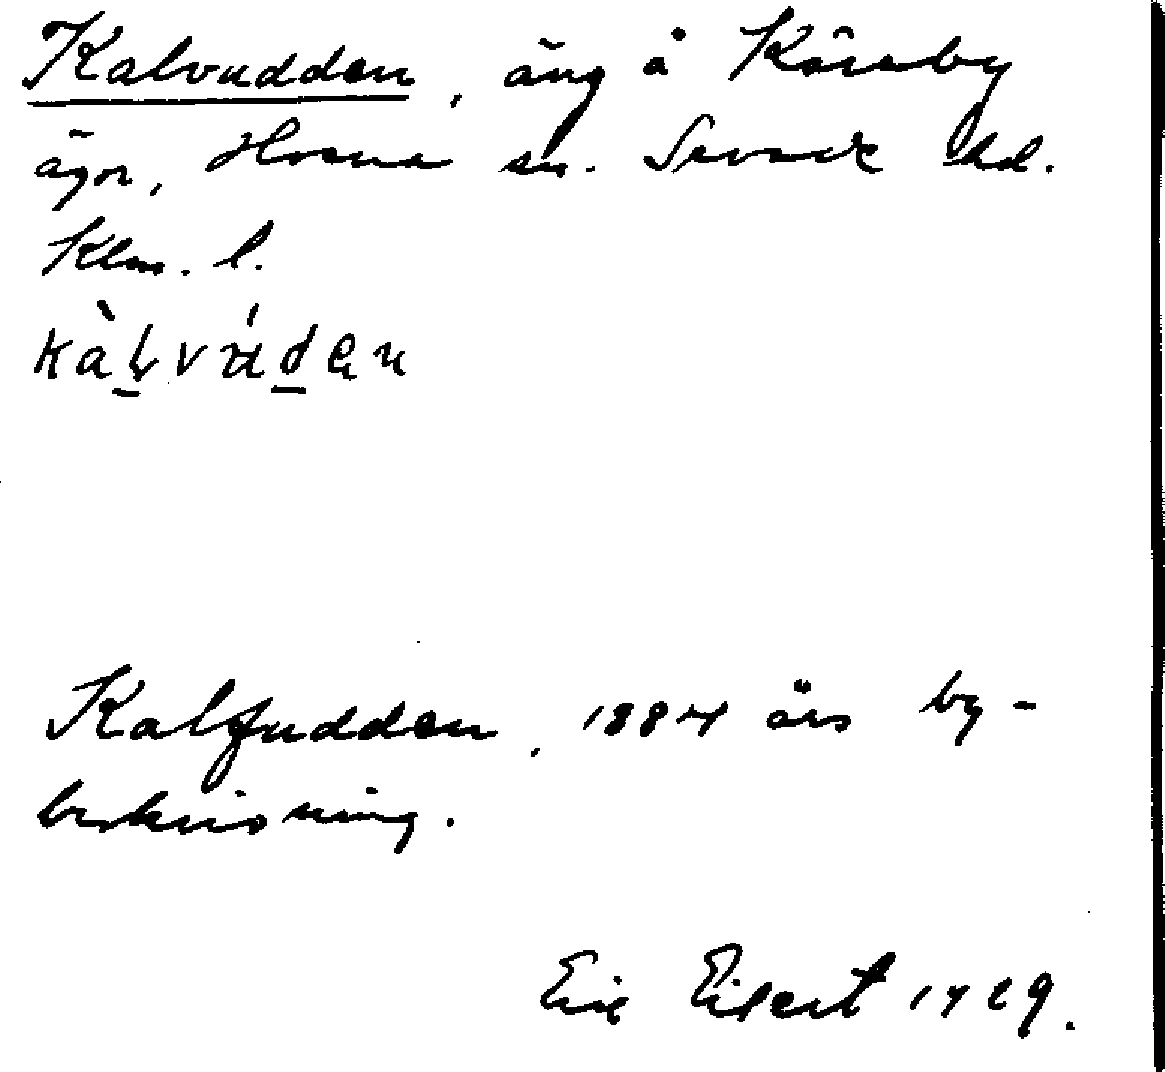 Kalvudden, äng å Kåreby
ägor, Hosmo sn. S. Möre hd.
Klm. l.
kàlvúden
Kalfudden, 1884 års by-
beskrivning.
Eric Eilert 1929.